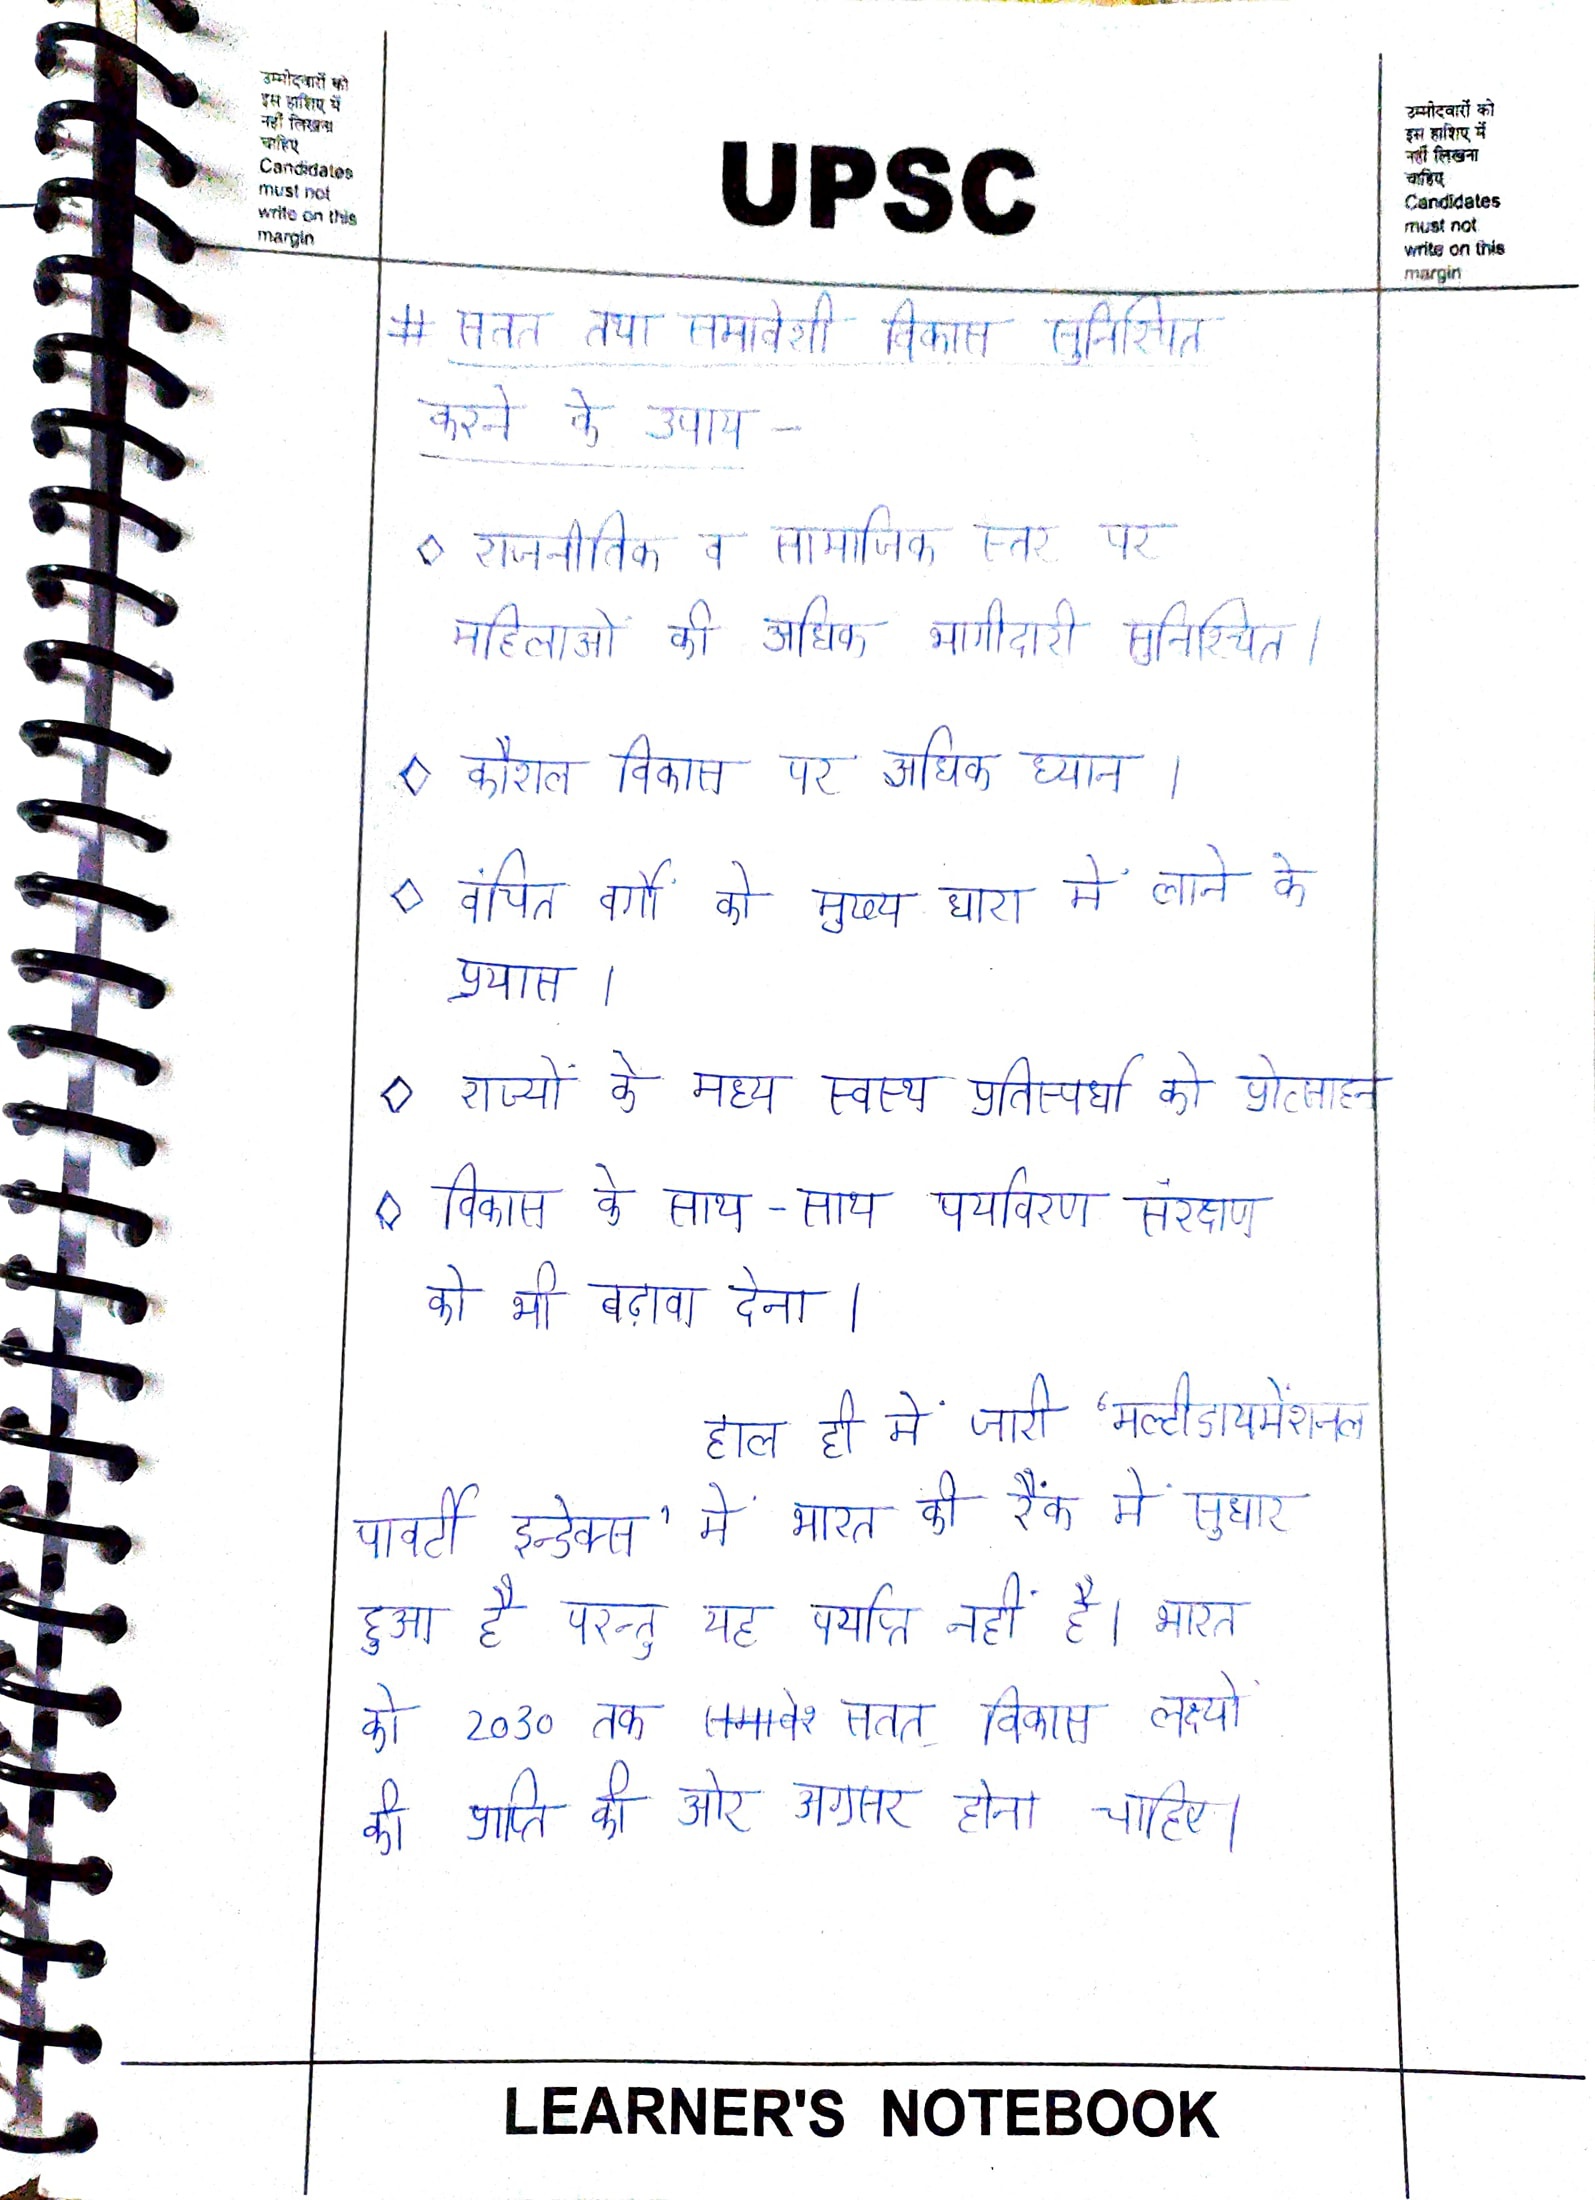 उम्मीदवारों को
इस हाशिए में
नहीं लिखना
चाहिए
Candidates
must not
write on this
margin
UPSC
उम्मीदवारों को
इस हाशिए में
नहीं लिखना
चाहिए
Candidates
must not
write on this
margin
# सतत तथा समावेशी विकास सुनिश्चित
करने के उपाय -
◇ राजनीतिक व सामाजिक स्तर पर
महिलाओं की अधिक भागीदारी सुनिश्चित।
◇ कौशल विकास पर अधिक ध्यान।
◇ वंचित वर्गों को मुख्य धारा में लाने के
प्रयास।
◇ राज्यों के मध्य स्वस्थ प्रतिस्पर्धा को प्रोत्साहन
◇ विकास के साथ-साथ पर्यावरण संरक्षण
को भी बढ़ावा देना।
हाल ही में जारी 'मल्टीडायमेंशनल
पावर्टी इन्डेक्स' में भारत की रैंक में सुधार
हुआ है परन्तु यह पर्याप्त नहीं है। भारत
को 2030 तक सतत विकास लक्ष्यों
की प्राप्ति की ओर अग्रसर होना चाहिए।
LEARNER'S NOTEBOOK